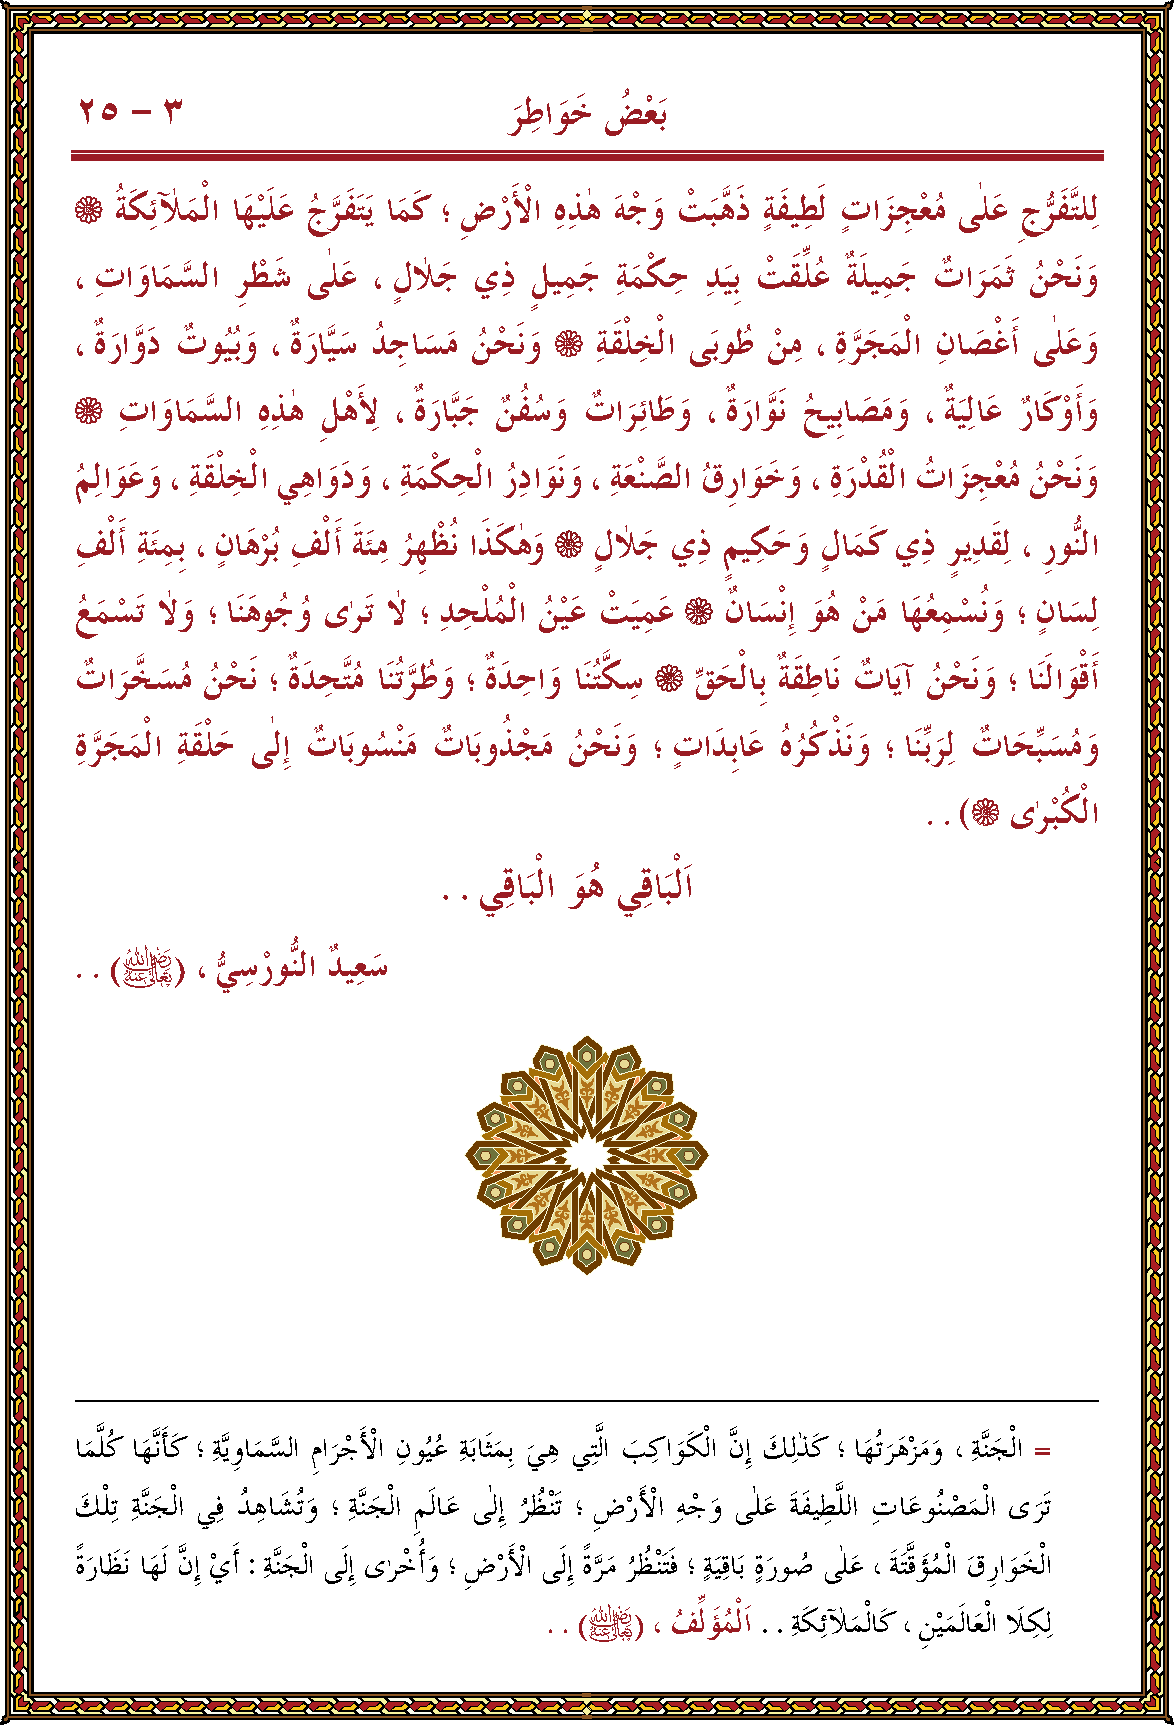 بَعْضُ خَوَاطِرَ ٣ – ٢٥
لِلتَّفَرُّجِ عَلٰى مُعْجِزَاتٍ لَطِيفَةٍ ذَهَّبَتْ وَجْهَ هٰذِهِ الْأَرْضِ ؛ كَمَا يَتَفَرَّجُ عَلَيْهَا الْمَلاٰۤئِكَةُ ۞
وَنَحْنُ ثَمَرَاتٌ جَمِيلَةٌ عُلِّقَتْ بِيَدِ حِكْمَةِ جَمِيلٍ ذِي جَلاٰلٍ ، عَلٰى شَطْرِ السَّمَاوَاتِ ،
وَعَلٰى أَغْصَانِ الْمَجَرَّةِ ، مِنْ طُوبَى الْخِلْقَةِ ۞ وَنَحْنُ مَسَاجِدُ سَيَّارَةٌ ، وَبُيُوتٌ دَوَّارَةٌ ،
وَأَوْكَارٌ عَالِيَةٌ ، وَمَصَابِيحُ نَوَّارَةٌ ، وَطَائِرَاتٌ وَسُفُنٌ جَبَّارَةٌ ، لِأَهْلِ هٰذِهِ السَّمَاوَاتِ ۞
وَنَحْنُ مُعْجِزَاتُ الْقُدْرَةِ ، وَخَوَارِقُ الصَّنْعَةِ ، وَنَوَادِرُ الْحِكْمَةِ ، وَدَوَاهِي الْخِلْقَةِ ، وَعَوَالِمُ
النُّورِ ، لِقَدِيرٍ ذِي كَمَالٍ وَحَكِيمٍ ذِي جَلاٰلٍ ۞ وَهٰكَذَا نُظْهِرُ مِئَةَ أَلْفِ بُرْهَانٍ ، بِمِئَةِ أَلْفِ
لِسَانٍ ؛ وَنُسْمِعُهَا مَنْ هُوَ إِنْسَانٌ ۞ عَمِيَتْ عَيْنُ الْمُلْحِدِ ؛ لاٰ تَرٰى وُجُوهَنَا ؛ وَلاٰ تَسْمَعُ
أَقْوَالَنَا ؛ وَنَحْنُ آيَاتٌ نَاطِقَةٌ بِالْحَقِّ ۞ سِكَّتُنَا وَاحِدَةٌ ؛ وَطُرَّتُنَا مُتَّحِدَةٌ ؛ نَحْنُ مُسَخَّرَاتٌ
وَمُسَبِّحَاتٌ لِرَبِّنَا ؛ وَنَذْكُرُهُ عَابِدَاتٍ ؛ وَنَحْنُ مَجْذُوبَاتٌ مَنْسُوبَاتٌ إِلٰى حَلْقَةِ الْمَجَرَّةِ
الْكُبْرٰى ۞) . .
اَلْبَاقِي هُوَ الْبَاقِي . .
سَعِيدٌ النُّورْسِيُّ ، (رَضِيَ اللهُ تَعَالٰى عَنْهُ) . .
= الْجَنَّةِ ، وَمَزْهَرَتُهَا ؛ كَذٰلِكَ إِنَّ الْكَوَاكِبَ الَّتِي هِيَ بِمَثَابَةِ عُيُونِ الْأَجْرَامِ السَّمَاوِيَّةِ ؛ كَأَنَّهَا كُلَّمَا
تَرَى الْمَصْنُوعَاتِ اللَّطِيفَةَ عَلٰى وَجْهِ الْأَرْضِ ؛ تَنْظُرُ إِلٰى عَالَمِ الْجَنَّةِ ؛ وَتُشَاهِدُ فِي الْجَنَّةِ تِلْكَ
الْخَوَارِقَ الْمُؤَقَّتَةَ ، عَلٰى صُورَةٍ بَاقِيَةٍ ؛ فَتَنْظُرُ مَرَّةً إِلَى الْأَرْضِ ؛ وَأُخْرٰى إِلَى الْجَنَّةِ : أَيْ إِنَّ لَهَا نَظَّارَةً
لِكِلَا الْعَالَمَيْنِ ، كَالْمَلاٰۤئِكَةِ . . اَلْمُؤَلِّفُ ، (رَضِيَ اللهُ تَعَالٰى عَنْهُ) . .